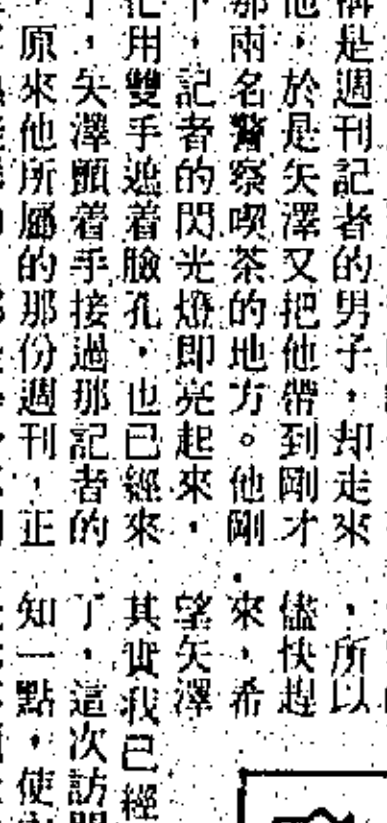 是週刊記者的男子，却走來
他，於是矢澤又把他帶到剛才
那兩名警察喫茶的地方。他剛
，記者的閃光燈即亮起來，
用雙手遮着臉孔，也已經來
，矢澤顫着手接過那記者的
原來他所屬的那份週刊，正
，所以
儘快趕
來，希
望矢澤
其實我已經
了，這次訪
知一點，使